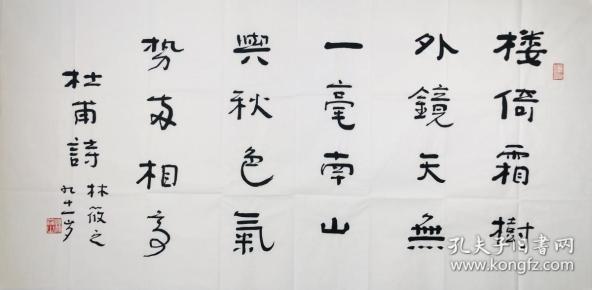 楼倚霜樹
外鏡天無
一毫南山
與秋色氣
势两相高
杜甫詩
林筱之
九十一岁
孔夫子旧书网
www.kongfz.com